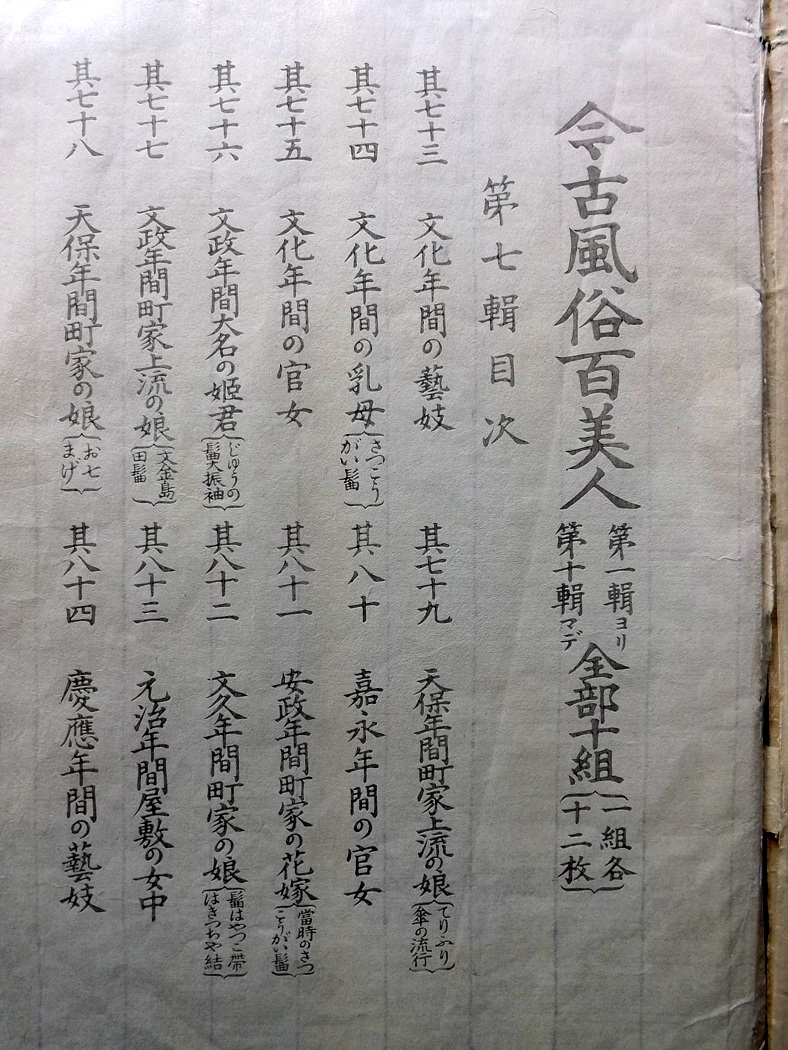 今古風俗百美人 第一輯ヨリ第十輯マデ 全部十組(一組各十二枚)
第七輯目次
其七十三 文化年間の藝妓
其七十四 文化年間の乳母(さつこうがい髷)
其七十五 文化年間の官女
其七十六 文政年間大名の姫君(じゆうの髷大振袖)
其七十七 文政年間町家上流の娘(文金島田髷)
其七十八 天保年間町家の娘(お七まげ)
其七十九 天保年間町家上流の娘(てりふり傘の流行)
其八十 嘉永年間の官女
其八十一 安政年間町家の花嫁(當時のさつこうがい髷)
其八十二 文久年間町家の娘(髷はやつこ帶はきつちや結)
其八十三 元治年間屋敷の女中
其八十四 慶應年間の藝妓